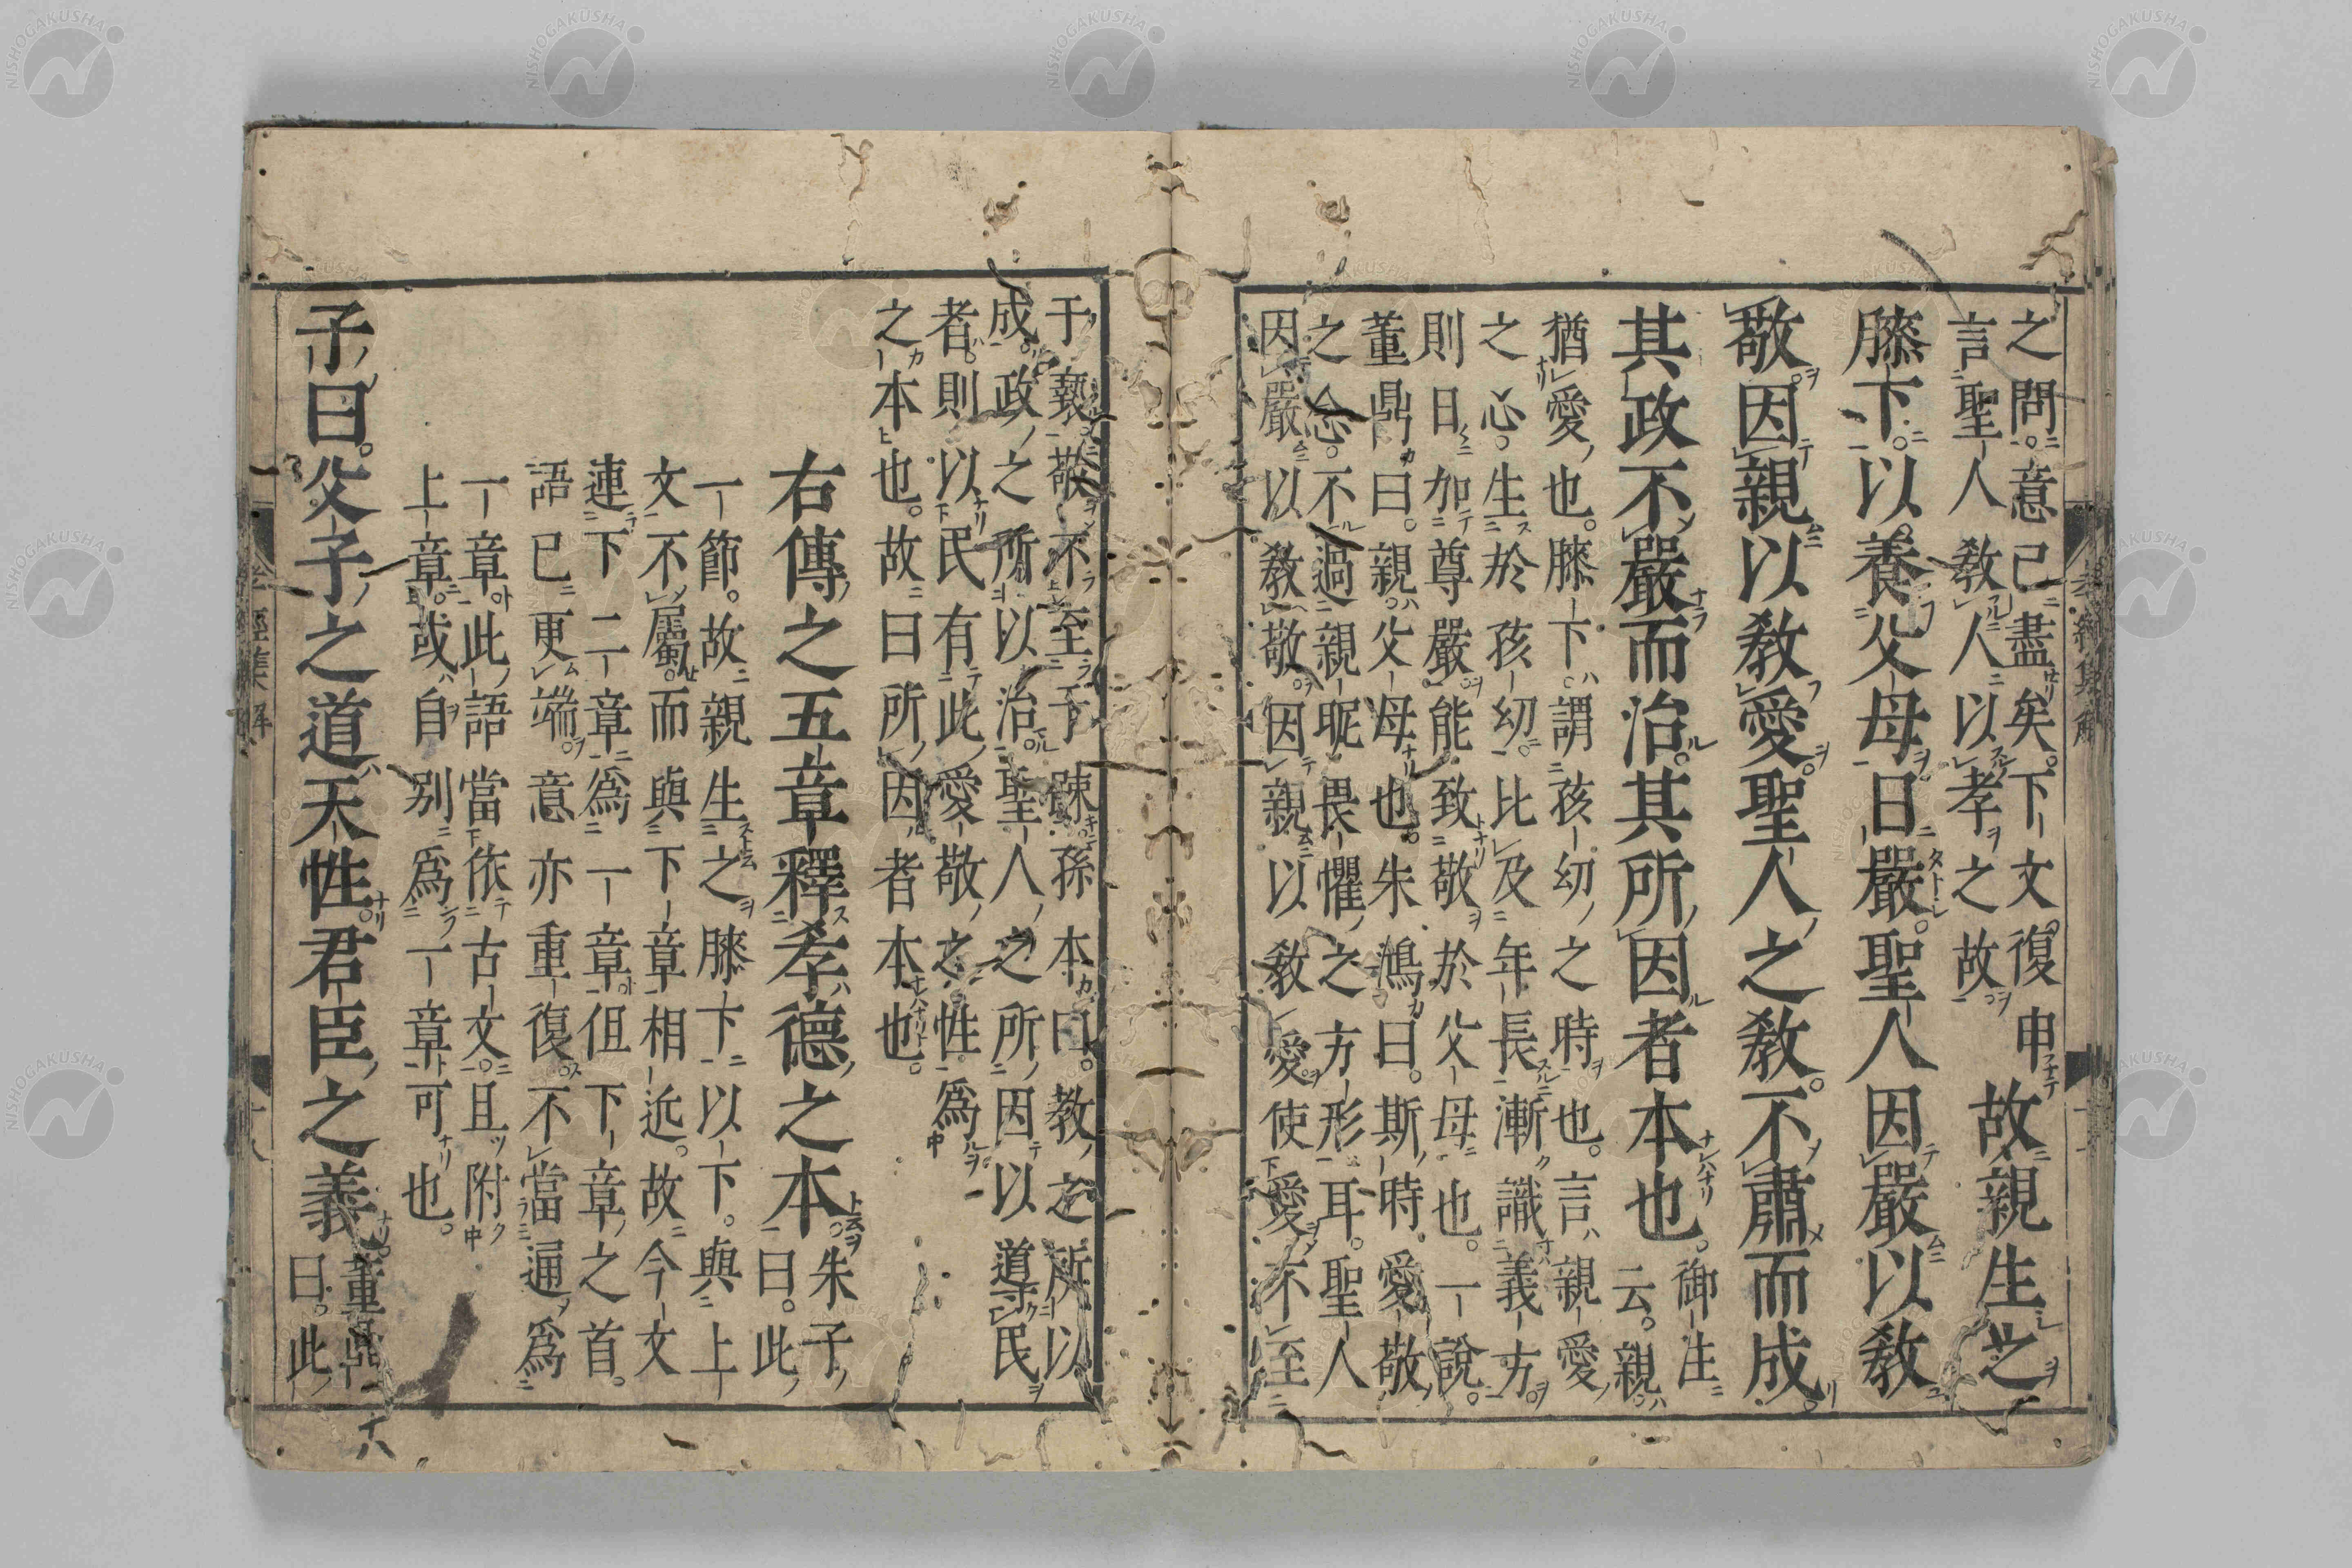 之問意已盡矣下文復申故親生之
言聖人教人以孝之故
膝下以養父母日嚴聖人因嚴以教
敬因親以教愛聖人之教不肅而成
其政不嚴而治其所因者本也御注
云親
猶愛也膝下謂孩幼之時也言親愛
之心生於孩幼比及年長漸識義方
則日加尊嚴能致敬於父母也一說
董鼎曰親父母也朱鴻曰斯時愛敬
之念不過親昵畏懼之方形耳聖人
因嚴以教敬因親以教愛使愛不至
于褻敬不至于踈孫本曰教之所以
成政之所以治聖人之所因以導民
者則以民有此愛敬之性為
之本也故曰所因者本也
右傳之五章釋孝德之本朱子
曰此
一節故親生之膝下以下與上
文不屬而與下章相近故今文
連下二章為一章但下章之首
語已更端意亦重復不當通為
一章此語當依古文且附
上章或自別為一章可也
子曰父子之道天性君臣之義董鼎
曰此
孝經集解
十八
NISHOGAKUSHA